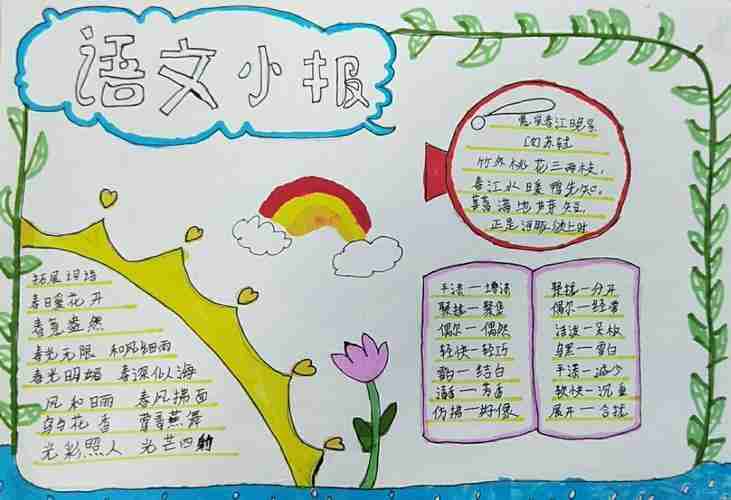 语文小报
惠崇春江晚景
[宋]苏轼
竹外桃花三两枝，
春江水暖鸭先知。
蒌蒿满地芦芽短，
正是河豚欲上时
拓展词语
春暖花开
春意盎然
春光无限 和风细雨
春光明媚 春深似海
风和日丽 春风拂面
鸟语花香 莺歌燕舞
光彩照人 光芒四射
平添一增添
聚拢一聚集
偶尔一偶然
轻快一轻巧
一结白
清香一芳香
仿拂一好像
聚拢一分开
偶尔一经常
一呆板
乌黑一雪白
平添一减少
轻快一沉重
展开一合拢